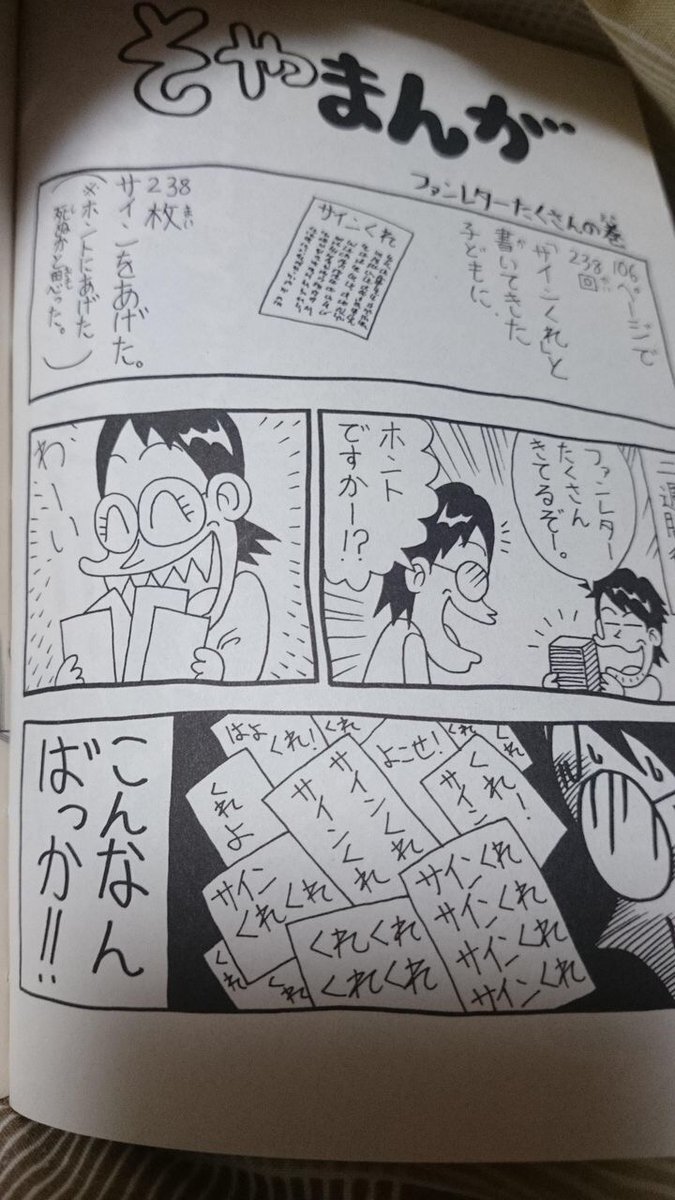 そやつまんが…
ファンレターたくさんの巻
106ページで
238回
「サインくれ」と
書いてきた
子どもに、
サインくれ
238枚
サインをあげた。
(※ホントにあげた
死ぬかと思った。)
ファンレター
たくさん
きてるぞー。
ホント
ですかー!?
わーい
くれ!
サイン
よこせ!
くれ!
はよ
サインくれ
サインくれ
くれよ
サインくれ
サインくれ
サインくれ
サインくれ
サイン
くれくれ
くれくれ
くれくれ
くれ
くれ
こんなん
ばっか!!